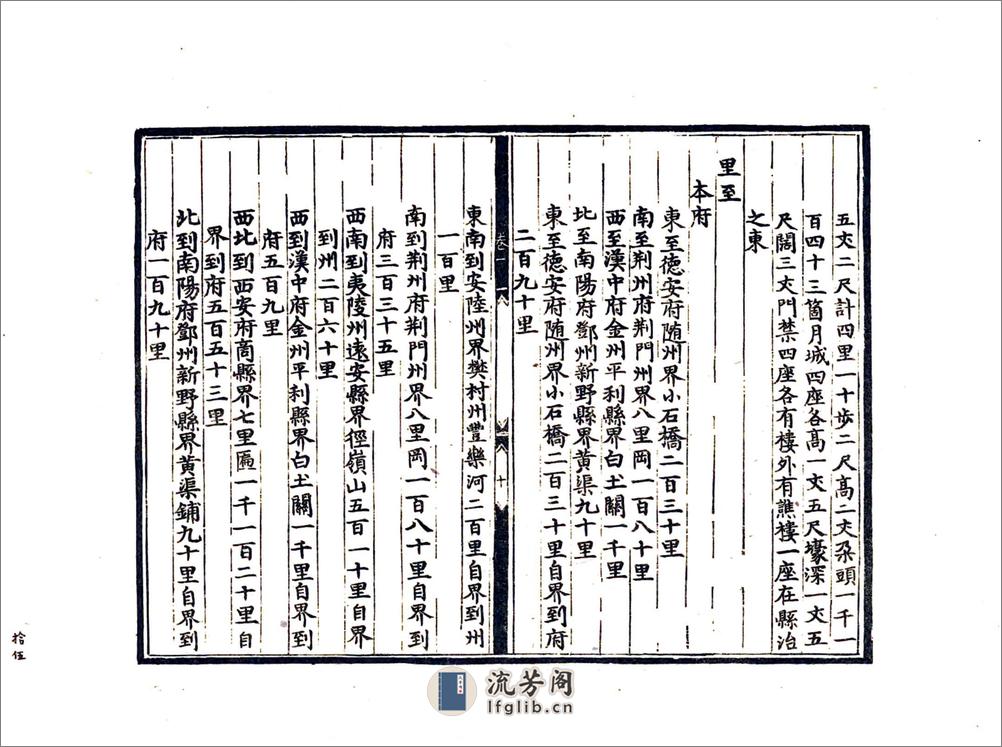 五丈二尺計四里一十歩二尺高二丈朶頭一千一
百四十三箇月城四座各高一丈五尺壕深一丈五
尺闊三丈門禁四座各有樓外有譙樓一座在縣治
之東
里至
本府
東至徳安府随州界小石橋二百三十里
南至荆州府荆門州界八里岡一百八十里
西至漢中府金州平利縣界白土關一千里
北至南陽府鄧州新野縣界黄渠九十里
東至徳安府随州界小石橋二百三十里自界到府
二百九十里
卷一
十
東南到安陸州界樊村州豐樂河二百里自界到州
一百里
南到荆州府荆門州界八里岡一百八十里自界到
府三百三十五里
西南到夷陵州遠安縣界徑嶺山五百一十里自界
到州二百六十里
西到漢中府金州平利縣界白土關一千里自界到
府五百九里
西北到西安府商縣界七里匾一千一百二十里自
界到府五百五十三里
北到南陽府鄧州新野縣界黄渠鋪九十里自界到
府一百九十里
拾伍
流芳阁
lfglib.cn